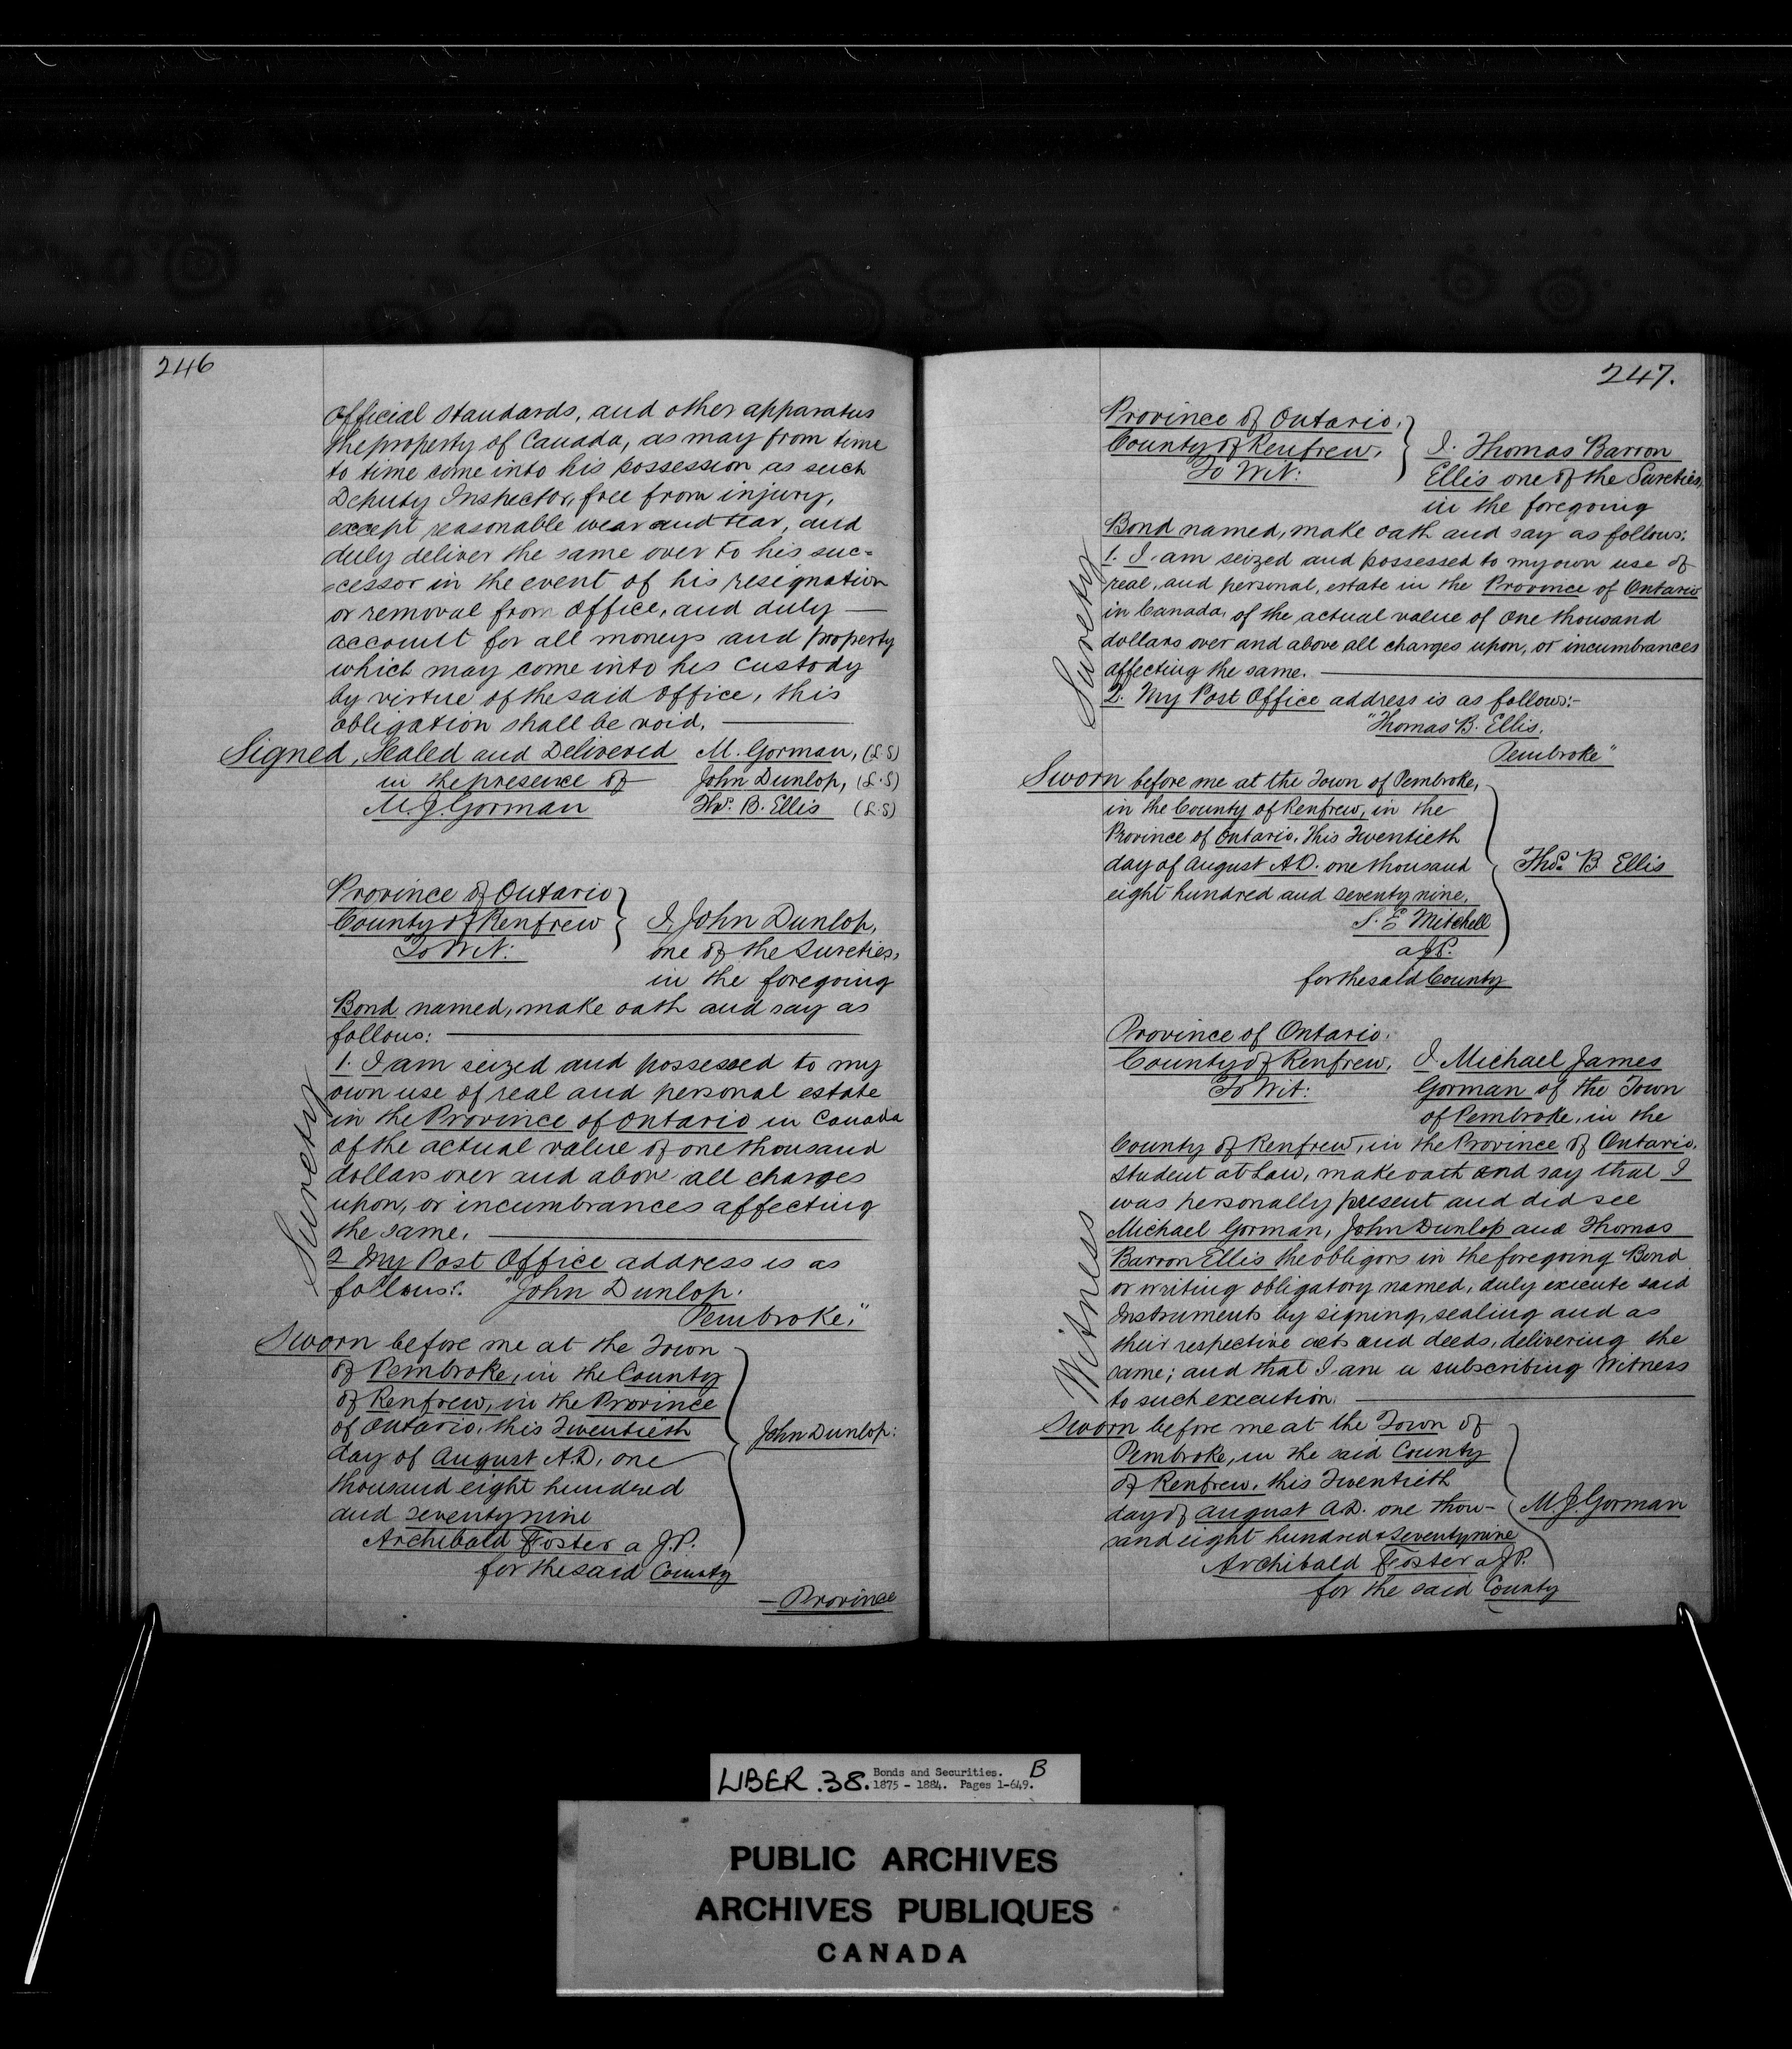 246
official standards, and other apparatus
the property of Canada, as may from time
to time come into his possession as such
Deputy Inspector, free from injury,
except reasonable wear and tear, and
duly deliver the same over to his suc-
cessor in the event of his resignation
or removal from office, and duly —
account for all moneys and property
which may come into his custody
by virtue of the said office, this
obligation shall be void. —
Signed, Sealed and Delivered M. Gorman, (L.S)
in the presence of John Dunlop, (L.S)
M. J. Gorman Thos. B. Ellis (L.S)
Province of Ontario
County of Renfrew I, John Dunlop,
To Wit: one of the Sureties,
in the foregoing
Bond named, make oath and say as
follows: —
Surety
1. I am seized and possessed to my
own use of real and personal estate
in the Province of Ontario in Canada
of the actual value of one thousand
dollars over and above all charges
upon, or incumbrances affecting
the same, —
2 My Post Office address is as
follows:. "John Dunlop.
Pembroke."
Sworn before me at the Town
of Pembroke, in the County
of Renfrew, in the Province
of Ontario, this Twentieth John Dunlop:
day of August A.D. one
thousand eight hundred
and seventy nine
Archibald Foster a J.P.
for the said County
— Province
247.
Province of Ontario,
County of Renfrew, I. Thomas Barron
To Wit: Ellis one of the Sureties,
in the foregoing
Bond named, make oath and say as follows:
Surety
1. I am seized and possessed to my own use of
real, and personal, estate in the Province of Ontario
in Canada, of the actual value of one thousand
dollars over and above all charges upon, or incumbrances
affecting the same. —
2. My Post Office address is as follows:-
"Thomas B. Ellis.
Pembroke"
Sworn before me at the Town of Pembroke,
in the County of Renfrew, in the
Province of Ontario. This Twentieth
day of August A.D. one thousand Thos. B Ellis
eight hundred and seventy nine.
S. E Mitchell
a J.P.
for the said County
Province of Ontario.
County of Renfrew, I. Michael James
To Wit: Gorman of the Town
of Pembroke, in the
County of Renfrew, in the Province of Ontario.
Student at Law, make oath and say that I
was personally present and did see
Witness
Michael Gorman, John Dunlop and Thomas
Barron Ellis the obligors in the foregoing Bond
or writing obligatory named, duly execute said
Instruments by signing, sealing and as
their respective acts and deeds, delivering the
same; and that I am a subscribing Witness
to such execution. —
Sworn before me at the Town of
Pembroke, in the said County
of Renfrew, this Twentieth
day of August A.D. one thou- M J. Gorman
sand eight hundred & Seventy nine
Archibald Foster a J.P.
for the said County
LIBER .38. Bonds and Securities. B
1875 - 1884. Pages 1-649.
PUBLIC ARCHIVES
ARCHIVES PUBLIQUES
CANADA